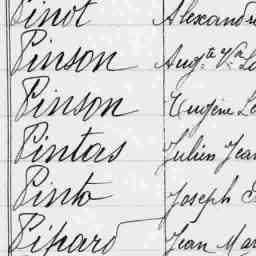 Pinot Alexandre
Pinson Aug.
Pinson Eugène Le
Pintas Julien Jean
Pinto Joseph
Pipard Jean Mar